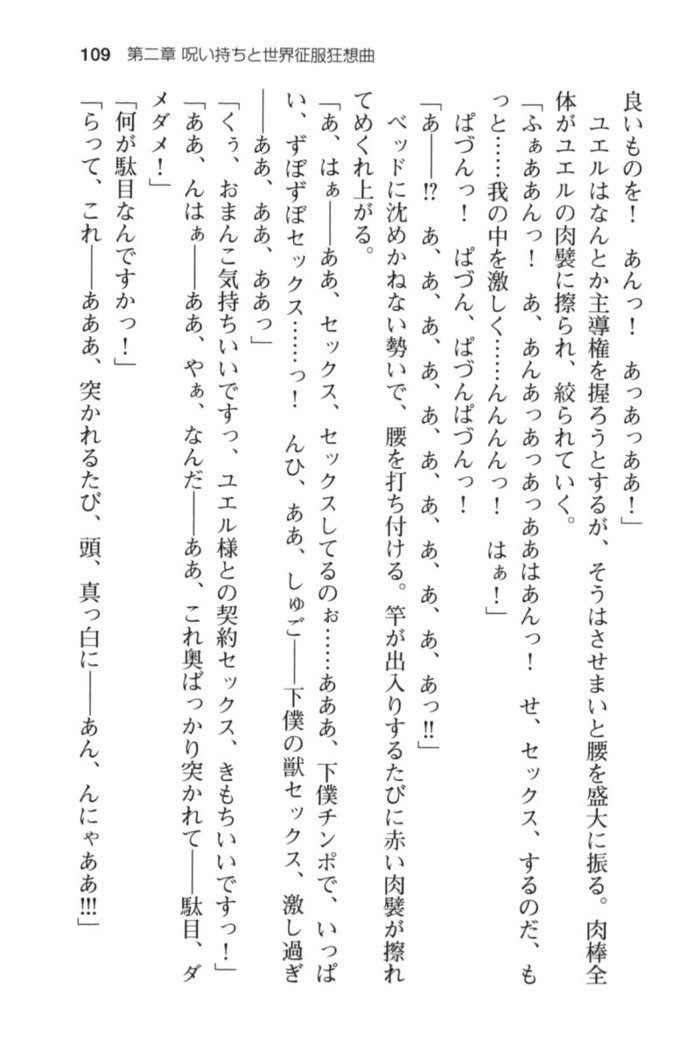 109 第二章 呪い持ちと世界征服狂想曲
良いものを！　あんっ！　あっあっああ！」
　ユエルはなんとか主導権を握ろうとするが、そうはさせまいと腰を盛大に振る。肉棒全
体がユエルの肉襞に擦られ、絞られていく。
「ふぁああんっ！　あ、あんあっあっあっああはあんっ！　せ、セックス、するのだ、も
っと……我の中を激しく……んんんんっ！　はぁ！」
　ぱづんっ！　ぱづん、ぱづんぱづんっ！
「あ――!?　あ、あ、あ、あ、あ、あ、あ、あ、あ、あ、あっ!!」
　ベッドに沈めかねない勢いで、腰を打ち付ける。竿が出入りするたびに赤い肉襞が擦れ
てめくれ上がる。
「あ、はぁ――ああ、セックス、セックスしてるのぉ……あああ、下僕チンポで、いっぱ
い、ずぼずぼセックス……っ！　んひ、ああ、しゅご――下僕の獣セックス、激し過ぎ
――ああ、ああ、ああっ」
「くぅ、おまんこ気持ちいいですっ、ユエル様との契約セックス、きもちいいですっ！」
「ああ、んはぁ――ああ、やぁ、なんだ――ああ、これ奥ばっかり突かれて――駄目、ダ
メダメ！」
「何が駄目なんですかっ！」
「らって、これ――あああ、突かれるたび、頭、真っ白に――あん、んにゃああ!!!」